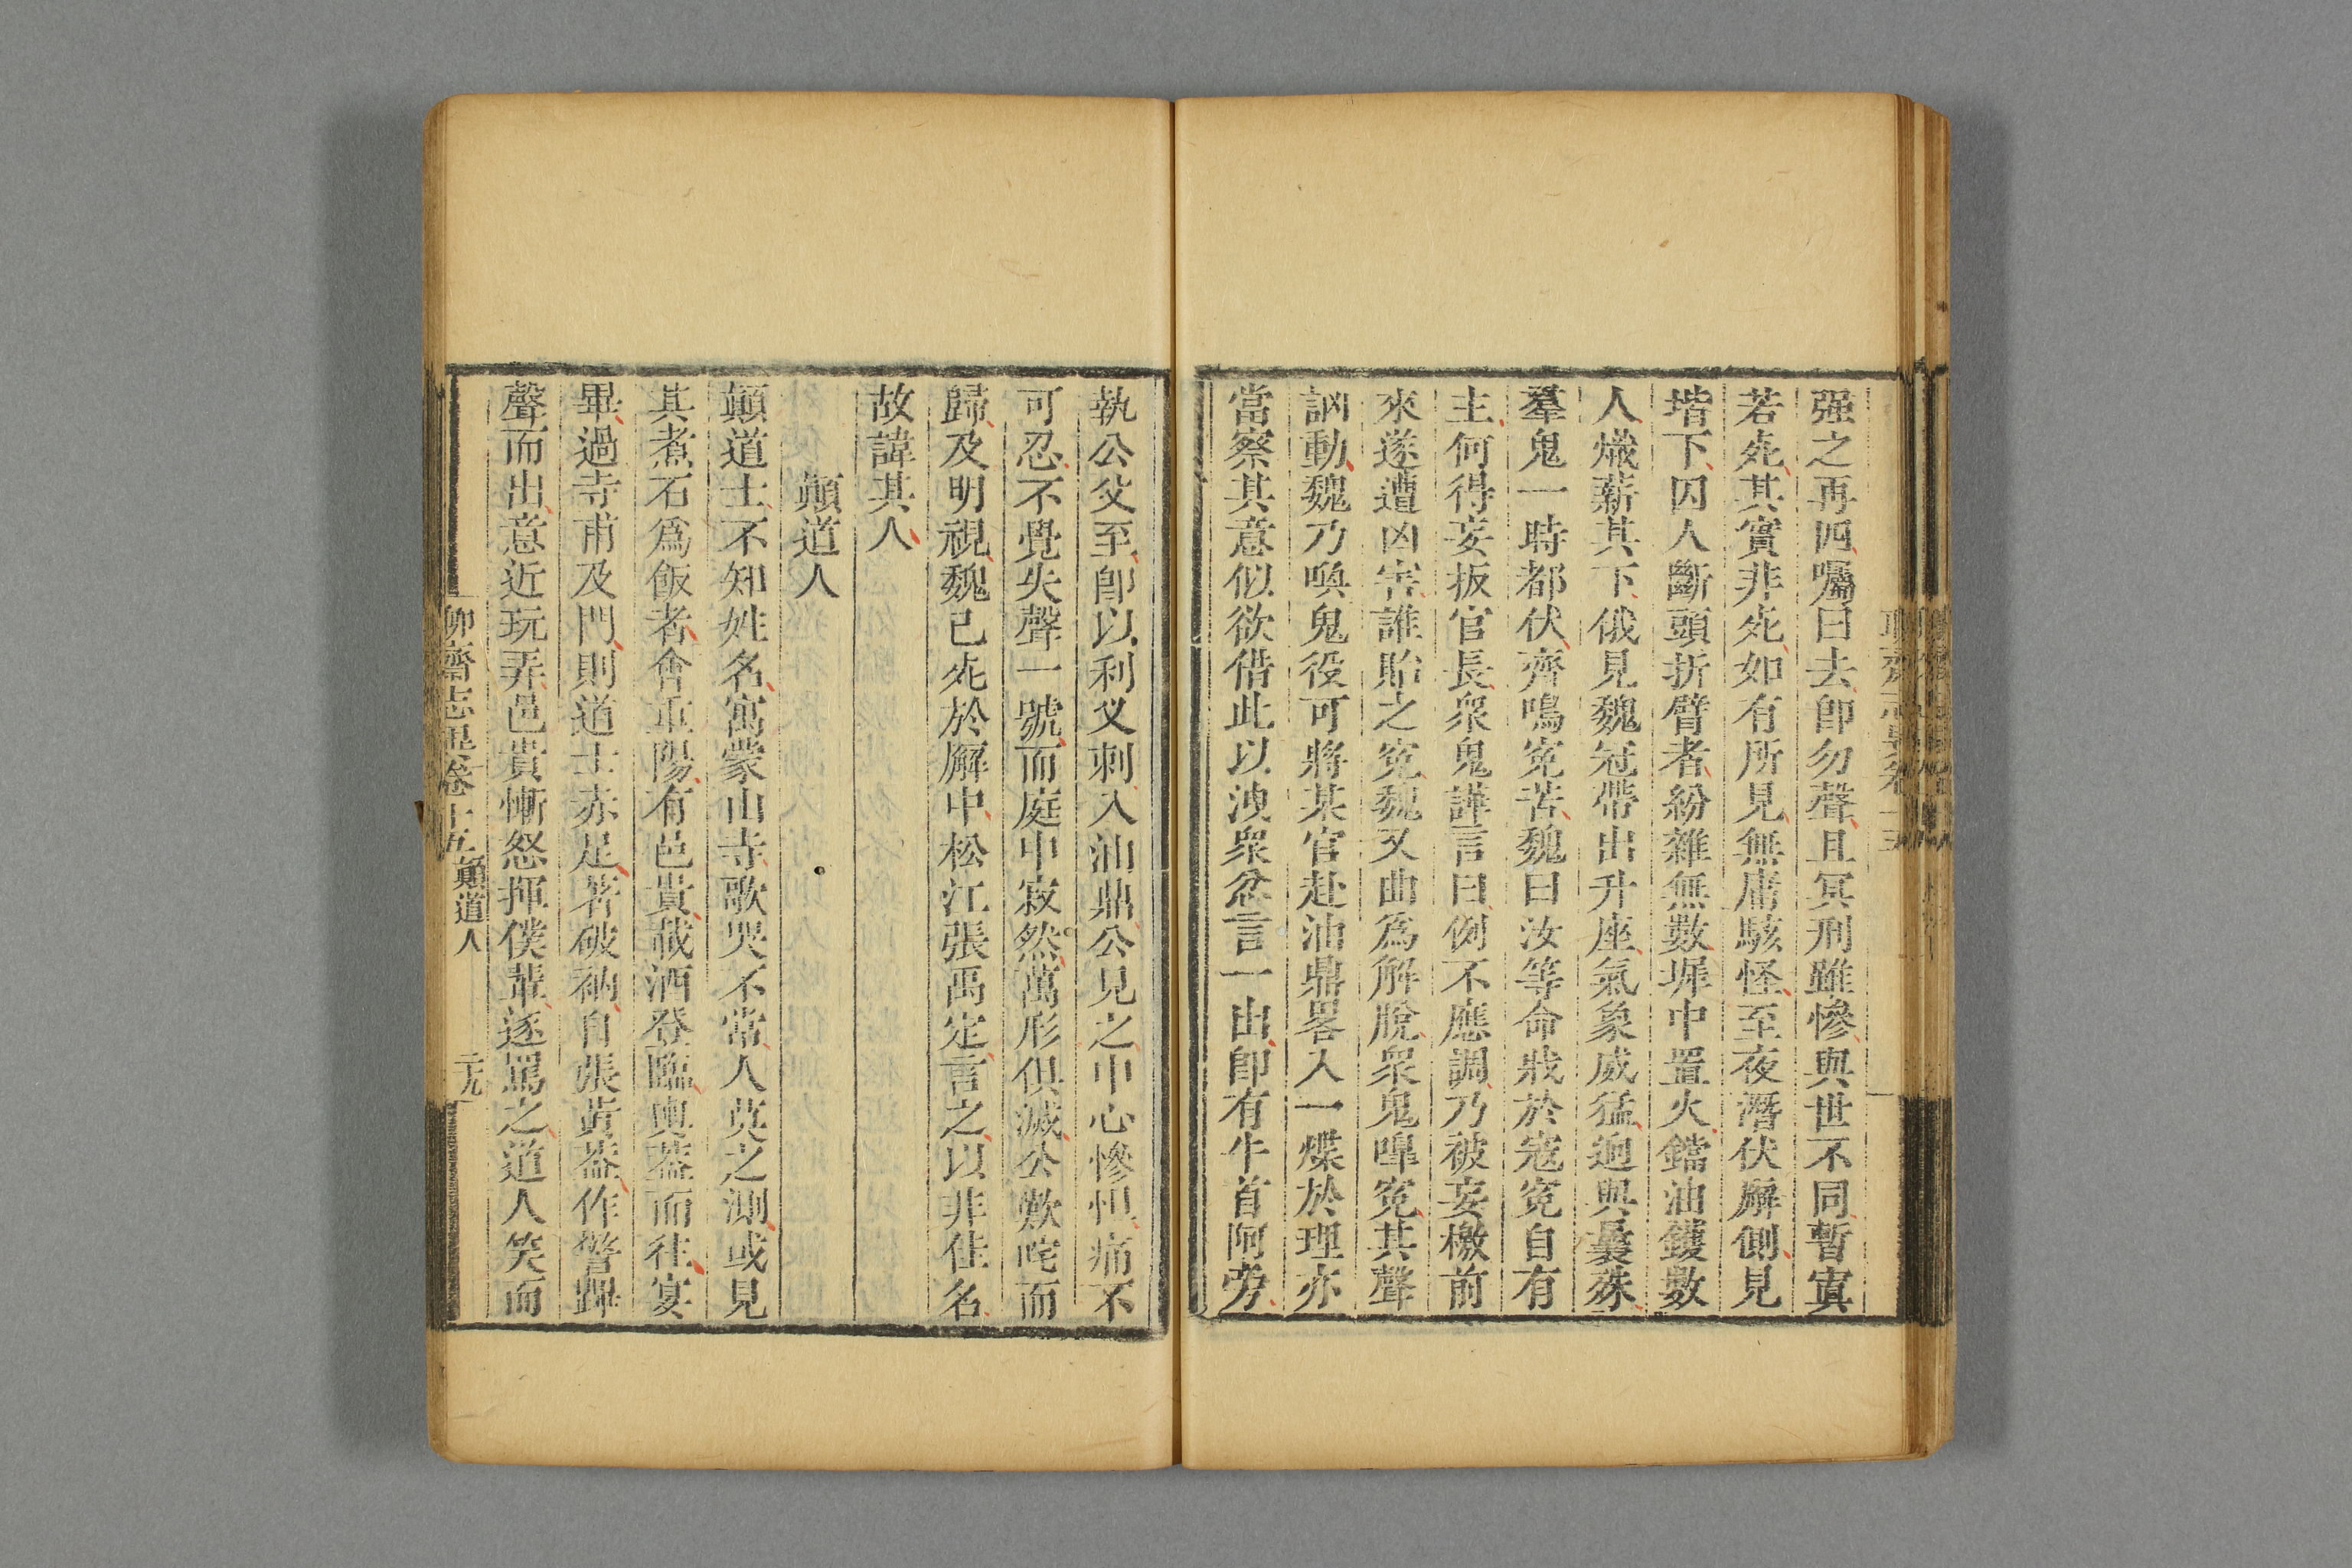 强之再四囑曰去卽勿聲且冥刑雖慘與世不同暫寘
若死其實非死如有所見無庸駭怪至夜潛伏廨側見
堦下囚人斷頭折臂者紛雜無數墀中置火鐺油鑊數
人熾薪其下俄見魏冠帶出升座氣象威猛迥與曩殊
羣鬼一時都伏齊鳴冤苦魏曰汝等命戕於寇冤自有
主何得妄扳官長衆鬼譁言曰例不應調乃被妄檄前
來遂遭凶害誰貽之冤魏又曲爲解脫衆鬼嘷冤其聲
訩動魏乃喚鬼役可將某官赴油鼎畧入一煠於理亦
當察其意似欲借此以洩衆忿言一出卽有牛首阿旁
執公父至卽以利叉刺入油鼎公見之中心慘怛痛不
可忍不覺失聲一號而庭中寂然萬形俱滅公歎咤而
歸及明視魏已死於廨中松江張禹定言之以非佳名
故諱其人
顛道人
顛道士不知姓名寓蒙山寺歌哭不常人莫之測或見
其煮石爲飯者會重陽有邑貴載酒登臨輿葢而往宴
畢過寺甫及門則道士赤足著破衲自張黃葢作警蹕
聲而出意近玩弄邑貴慚怒揮僕輩逐罵之道人笑而
聊齋志異卷十五 顛道人 二十九